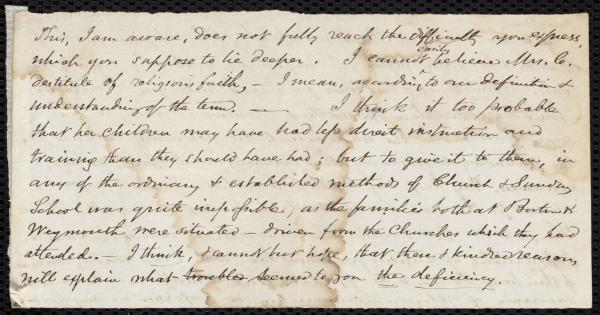 This, I am aware, does not fully reach the difficulty you express,
which you suppose to lie deeper. I cannot easily believe Mrs. C.
destitute of religious faith, – I mean, according to our definition &
understanding of the term. — I think it too probable
that her children may have had less direct instruction and
training than they should have had; but to give it to them, in
any of the ordinary & established methods of Church & Sunday
School was quite impossible, as the families both at Boston &
Weymouth were situated – driven from the Churches which they had
attended. – I think, & cannot but hope, that these & kindred reasons
will explain what troubled seemed to you the deficiency.